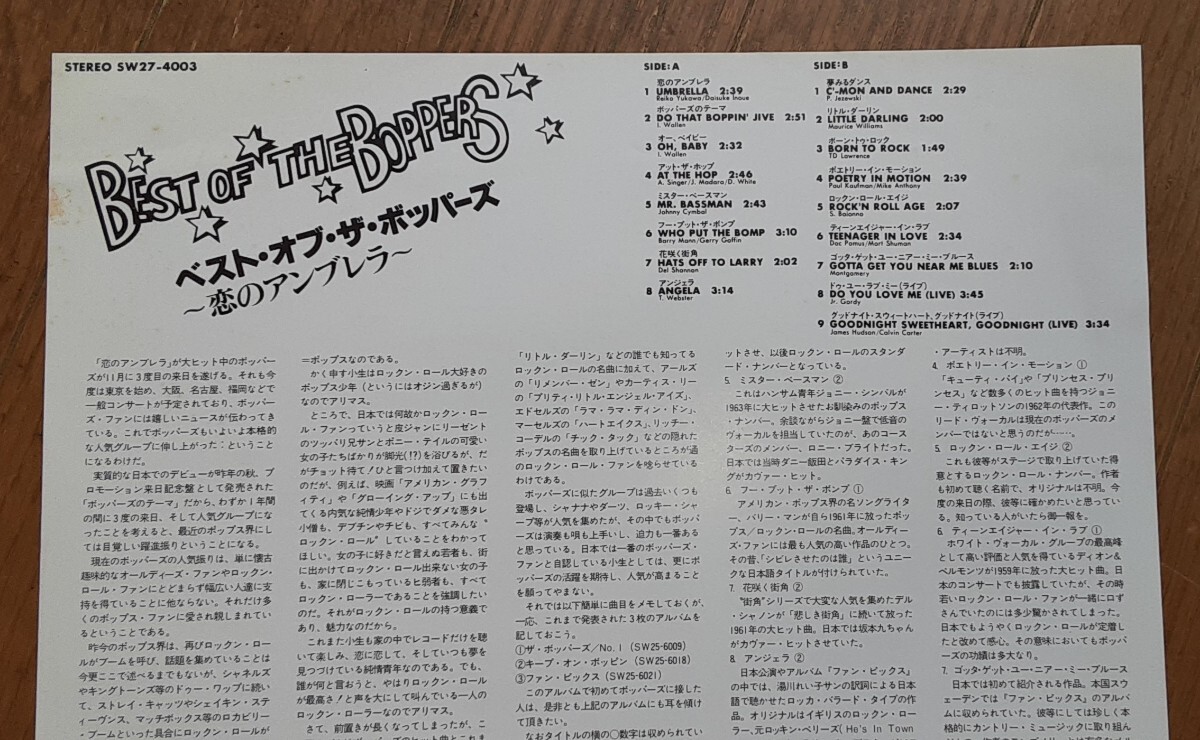 STEREO SW27-4003
BEST OF THE BOPPERS
ベスト・オブ・ザ・ボッパーズ
〜恋のアンブレラ〜
SIDE: A
恋のアンブレラ
1 UMBRELLA 2:39
Reiko Yukawa/Daisuke Inoue
ボッパーズのテーマ
2 DO THAT BOPPIN' JIVE 2:51
I. Wallen
オー、ベイビー
3 OH, BABY 2:32
I. Wallen
アット・ザ・ホップ
4 AT THE HOP 2:46
A. Singer/J. Madara/D. White
ミスター・ベースマン
5 MR. BASSMAN 2:43
Johnny Cymbal
フー・プット・ザ・ボンプ
6 WHO PUT THE BOMP 3:10
Barry Mann/Gerry Goffin
花咲く街角
7 HATS OFF TO LARRY 2:02
Del Shannon
アンジェラ
8 ANGELA 3:14
T. Webster
SIDE: B
夢みるダンス
1 C'MON AND DANCE 2:29
P. Jezewski
リトル・ダーリン
2 LITTLE DARLING 2:00
Maurice Williams
ボーン・トゥ・ロック
3 BORN TO ROCK 1:49
TD Lawrence
ポエトリー・イン・モーション
4 POETRY IN MOTION 2:39
Paul Kaufman/Mike Anthony
ロックン・ロール・エイジ
5 ROCK'N ROLL AGE 2:07
S. Baionno
ティーンエイジャー・イン・ラブ
6 TEENAGER IN LOVE 2:34
Doc Pomus/Mort Shuman
ゴッタ・ゲット・ユー・ニアー・ミー・ブルース
7 GOTTA GET YOU NEAR ME BLUES 2:10
Montgomery
ドゥ・ユー・ラブ・ミー(ライブ)
8 DO YOU LOVE ME (LIVE) 3:45
Jr. Gordy
グッドナイト・スウィートハート、グッドナイト(ライブ)
9 GOODNIGHT SWEETHEART, GOODNIGHT (LIVE) 3:34
James Hudson/Calvin Carter
「恋のアンブレラ」が大ヒット中のボッパー
ズが11月に3度目の来日を遂げる。それも今
度は東京を始め、大阪、名古屋、福岡などで
一般コンサートが予定されており、ボッパー
ズ・ファンには嬉しいニュースが伝わってき
ている。これでボッパーズもいよいよ本格的
な人気グループに伸し上がった:ということ
になるわけだ。
実質的な日本でのデビューが昨年の秋。プ
ロモーション来日記念盤として発売された
「ボッパーズのテーマ」だから、わずか1年間
の間に3度の来日、そして人気グループにな
ったことを考えると、最近のポップス界にし
ては目覚しい躍進振りということになる。
現在のボッパーズの人気振りは、単に懐古
趣味的なオールディーズ・ファンやロックン・
ロール・ファンにとどまらず幅広い人達に支
持を得ていることに他ならない。それだけ多
くのポップス・ファンに愛され親しまれてい
るということである。
昨今のポップス界は、再びロックン・ロー
ルがブームを呼び、話題を集めていることは
今更ここで述べるまでもないが、シャネルズ
やキングトーンズ等のドゥー・ワップに続い
て、ストレイ・キャッツやシェイキン・ステ
ィーヴンス、マッチボックス等のロカビリー
・ブームといった具合にロックン・ロールが
=ポップスなのである。
かく申す小生はロックン・ロール大好きの
ポップス少年(というにはオジン過ぎるが)
なのでアリマス。
ところで、日本では何故かロックン・ロー
ル・ファンっていうと皮ジャンにリーゼントの
ツッパリ兄サンとポニー・テイルの可愛い
女の子たちばかりが脚光(!?)を浴びるが、だ
がチョット待て!ひと言つけ加えて置きたい
のだが、例えば、映画「アメリカン・グラフ
ィティ」や「グローイング・アップ」にも出
てくる内気な純情少年やドジでダメな悪タレ
小僧も、デブチンやチビも、すべてみんな“
ロックン・ロール”していることをわかって
ほしい。女の子に好きだと言えぬ若者も、街
に出かけてロックン・ロール出来ない女の子
も、家に閉じこもっているヒ弱者も、すべて
ロックン・ローラーであることを強調したい
のだ。それがロックン・ロールの持つ意義で
あり、魅力なのだから。
これまた小生も家の中でレコードだけを聴
いて楽しみ、恋に恋して、そしていつも夢を
見つづけている純情青年なのである。でも、
誰が何と言おうと、やはりロックン・ロール
が最高さ!と声を大にして叫んでいる一人の
ロックン・ローラーなのでアリマス。
さて、前置きが長くなってしまったが、こ
「リトル・ダーリン」などの誰でも知ってる
ロックン・ロールの名曲に加えて、アールズ
の「リメンバー・ゼン」やカーティス・リー
の「プリティ・リトル・エンジェル・アイズ」、
エドセルズの「ラマ・ラマ・ディン・ドン」、
マーセルズの「ハートエイクス」、リッチー・
コーデルの「チック・タック」などの隠れた
ポップスの名曲を取り上げているところが過
のロックン・ロール・ファンを唸らせている
わけである。
ボッパーズに似たグループは過去いくつも
登場し、シャナナやダーツ、ロッキー・シャ
ープ等が人気を集めたが、その中でもボッパ
ーズは演奏も唄も上手いし、迫力も一番ある
と思っている。日本では一番のボッパーズ・
ファンと自認している小生としては、更にボ
ッパーズの活躍を期待し、人気が高まること
を願ってやまない。
それでは以下簡単に曲目をメモしておくが、
一応、これまで発表された3枚のアルバムを
記しておこう。
①ザ・ボッパーズ/No.1 (SW25-6009)
②キープ・オン・ボッピン (SW25-6018)
③ファン・ピックス (SW25-6021)
このアルバムで初めてボッパーズに接した
人は、是非とも上記のアルバムにも耳を傾け
て頂きたい。
なおタイトルの横の○数字は収められてい
ットさせ、以後ロックン・ロールのスタンダ
ード・ナンバーとなっている。
5. ミスター・ベースマン ②
これはハンサム青年ジョニー・シンバルが
1963年に大ヒットさせたお馴染みのポップス
・ナンバー。余談ながらジョニー盤で低音の
ヴォーカルを担当していたのが、あのコース
ターズのメンバー、ロニー・ブライトだった。
日本では当時ダニー飯田とパラダイス・キン
グがカヴァー・ヒット。
6. フー・プット・ザ・ボンプ ①
アメリカン・ポップス界の名ソングライタ
ー、バリー・マンが自ら1961年に放ったポッ
プス/ロックン・ロールの名曲。オールディー
ズ・ファンには最も人気の高い作品のひとつ。
その昔、「シビレさせたのは誰」というユニー
クな日本語タイトルが付けられていた。
7. 花咲く街角 ②
“街角”シリーズで大変な人気を集めたデル
・シャノンが「悲しき街角」に続いて放った
1961年の大ヒット曲。日本では坂本九ちゃん
がカヴァー・ヒットさせていた。
8. アンジェラ ②
日本公演やアルバム「ファン・ピックス」
の中では、湯川れい子サンの訳詞による日本
語で聴かせたロッカ・バラード・タイプの作
品。オリジナルはイギリスのロックン・ロー
ラー、元ロッキン・ベリーズ(He's In Town
・アーティストは不明。
4. ポエトリー・イン・モーション ①
「キューティ・パイ」や「プリンセス・プリ
ンセス」など数多くのヒット曲を持つジョニ
ー・ティロットソンの1962年の代表作。この
リード・ヴォーカルは現在のボッパーズのメ
ンバーではないと思うのだが……。
5. ロックン・ロール・エイジ ②
これも彼等がステージで取り上げていた得
意とするロックン・ロール・ナンバー。作者
も初めて聴く名前で、オリジナルは不明。今
度の来日の際、彼等に確かめたいと思ってい
る。知っている人がいたら御一報を。
6. ティーンエイジャー・イン・ラブ ①
ホワイト・ヴォーカル・グループの最高峰
として高い評価と人気を得ているディオン&
ベルモンツが1959年に放った大ヒット曲。日
本のコンサートでも披露していたが、その時
若いロックン・ロール・ファンが一緒に口ず
さんでいたのには多少驚かされてしまった。
日本でもようやくロックン・ロールが定着し
たと改めて感心。その意味においてもボッパ
ーズの功績は多大なり。
7. ゴッタ・ゲット・ユー・ニアー・ミー・ブルース
日本では初めて紹介される作品。本国スウ
ェーデンでは「ファン・ピックス」のアルバ
ムに収められていた。彼等にしては珍しく本
格的にカントリー・ミュージックに取り組ん